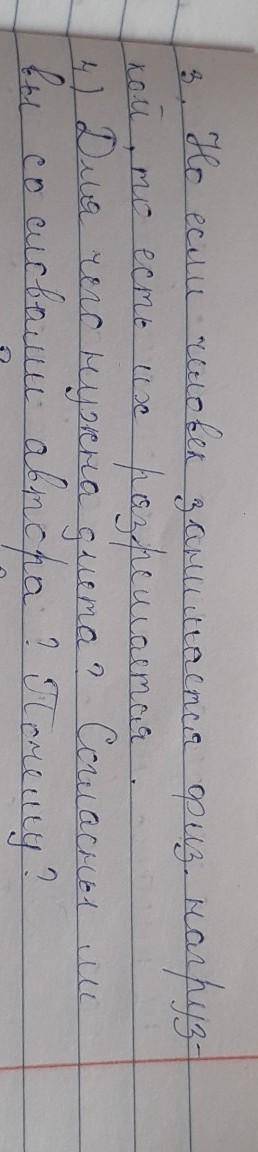 3. Но если человек занимается физ. нагруз-
кой, то есть их разрешается.
4) Для чего нужна диета? Согласны ли
вы со словами автора? Почему?